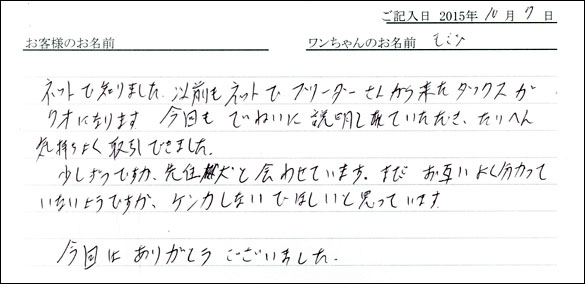 ご記入日 2015年 10月 7日
お客様のお名前 ワンちゃんのお名前 モミジ
ネットで知りました。以前もネットでブリーダーさんから来たダックスが
9才になります 今回も ていねいに説明していただき、たいへん
気持ちよく取引できました。
少しずつですが、先住犬と会わせています。まだ お互いよく分かって
いないようですが、ケンカしないでほしいと思っています
今回は ありがとう ございました。